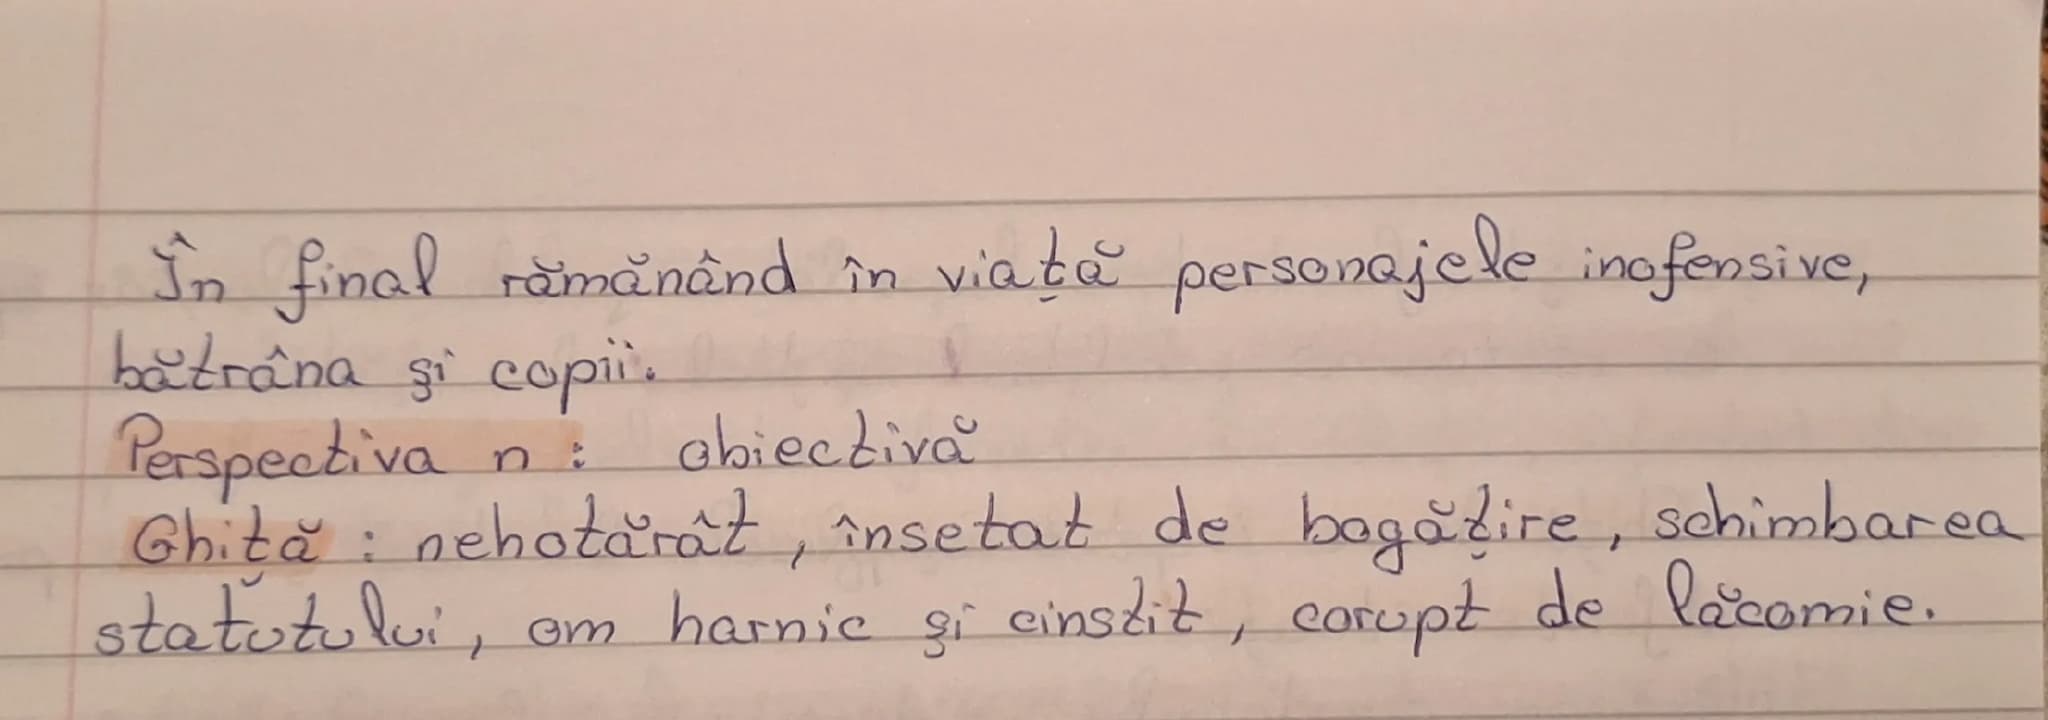 În final rămănând în viață personajele inofensive,
bătrâna și copii.
Perspectiva n: obiectivă
Ghiță: nehotărât, însetat de bogățire, schimbarea
statutului, om harnic și cinstit, corupt de lăcomie.